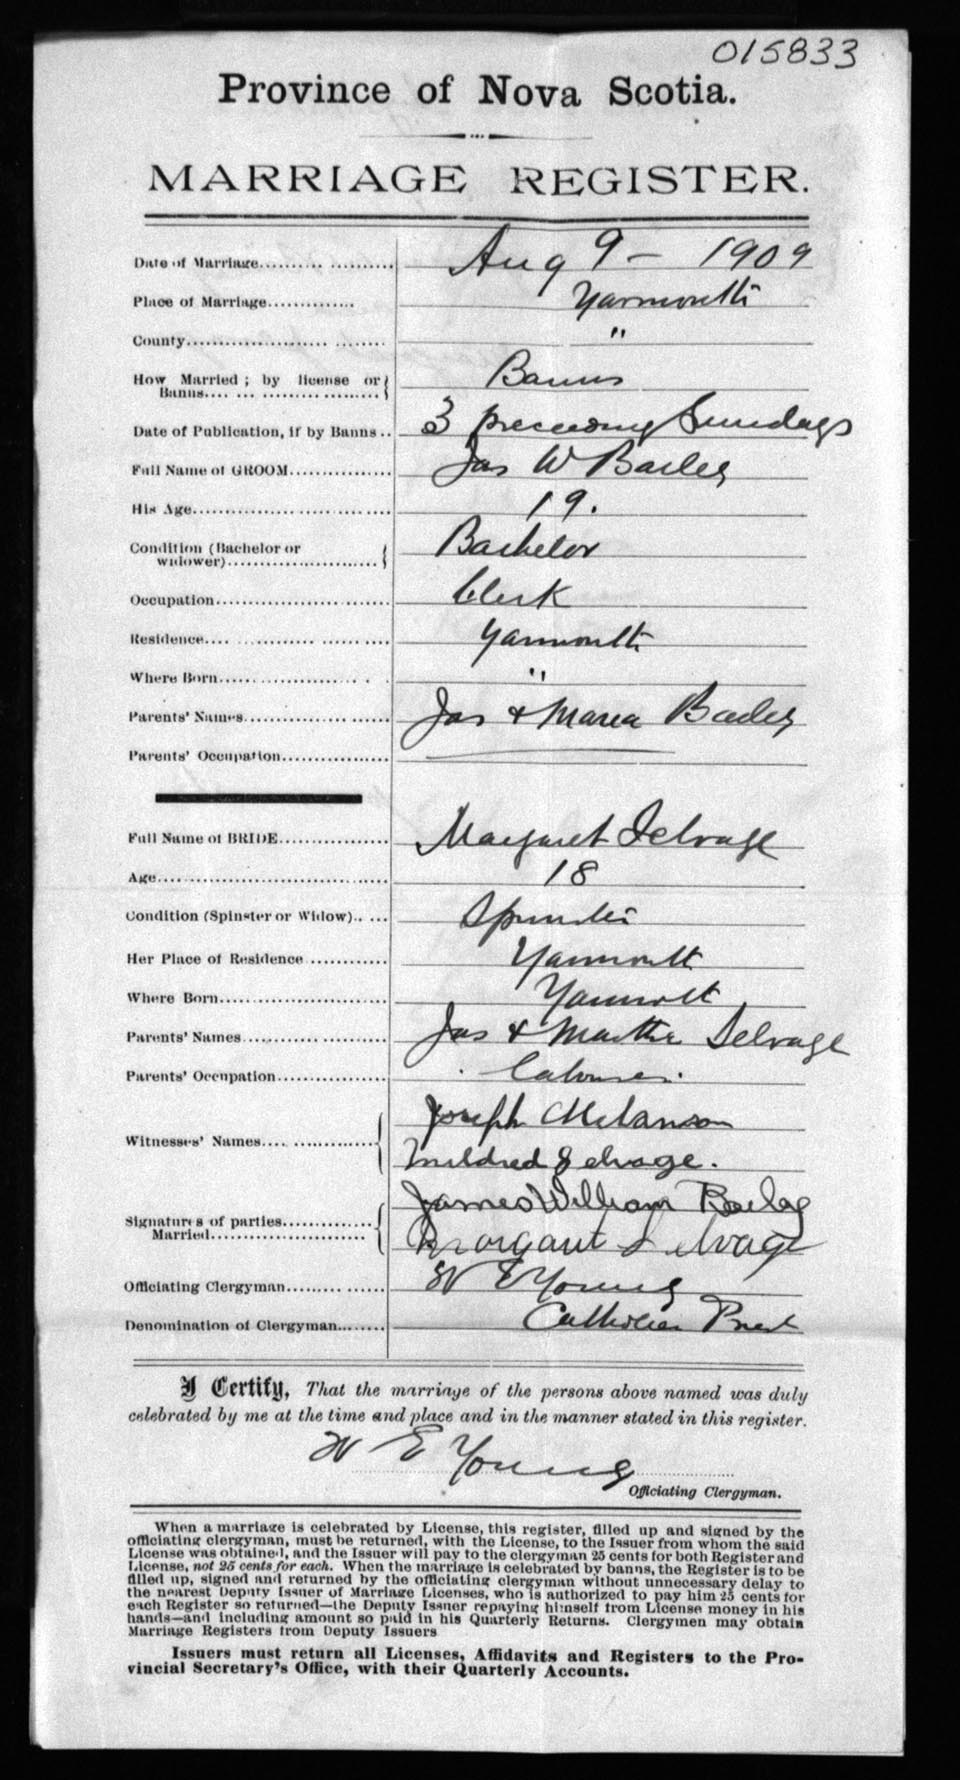 015833
Province of Nova Scotia.
MARRIAGE REGISTER.
Date of Marriage.......... Aug 9 - 1909
Place of Marriage............. Yarmouth
County.................... "
How Married ; by license or
Banns.... Banns
Date of Publication, if by Banns.. 3 preceeding Sundays
Full Name of GROOM............... Jas W Bailey
His Age.................... 19.
Condition (Bachelor or
widower)......................... Bachelor
Occupation.................... Clerk
Residence.... Yarmouth
Where Born.................... "
Parents' Names.................... Jas & Maria Bailey
Parents' Occupation..................
Full Name of BRIDE................. Margaret Selvage
Age.................... 18
Condition (Spinster or Widow).. .... Spinster
Her Place of Residence ............ Yarmouth
Where Born.................... Yarmouth
Parents' Names.................... Jas & Martha Selvage
Parents' Occupation..................
Joseph Melanson
Witnesses' Names....
Mildred Selvage.
James William Bailey
Signatures of parties.............
Married.......................
Margaret Selvage
Officiating Clergyman............. W E Young
Denomination of Clergyman......... Catholic Priest
I Certify, That the marriage of the persons above named was duly
celebrated by me at the time and place and in the manner stated in this register.
W E Young
Officiating Clergyman.
When a marriage is celebrated by License, this register, filled up and signed by the
officiating clergyman, must be returned, with the License, to the Issuer from whom the said
License was obtained, and the Issuer will pay to the clergyman 25 cents for both Register and
License, not 25 cents for each. When the marriage is celebrated by banns, the Register is to be
filled up, signed and returned by the officiating clergyman without unnecessary delay to
the nearest Deputy Issuer of Marriage Licenses, who is authorized to pay him 25 cents for
each Register so returned—the Deputy Issuer repaying himself from License money in his
hands—and including amount so paid in his Quarterly Returns. Clergymen may obtain
Marriage Registers from Deputy Issuers
Issuers must return all Licenses, Affidavits and Registers to the Pro-
vincial Secretary's Office, with their Quarterly Accounts.